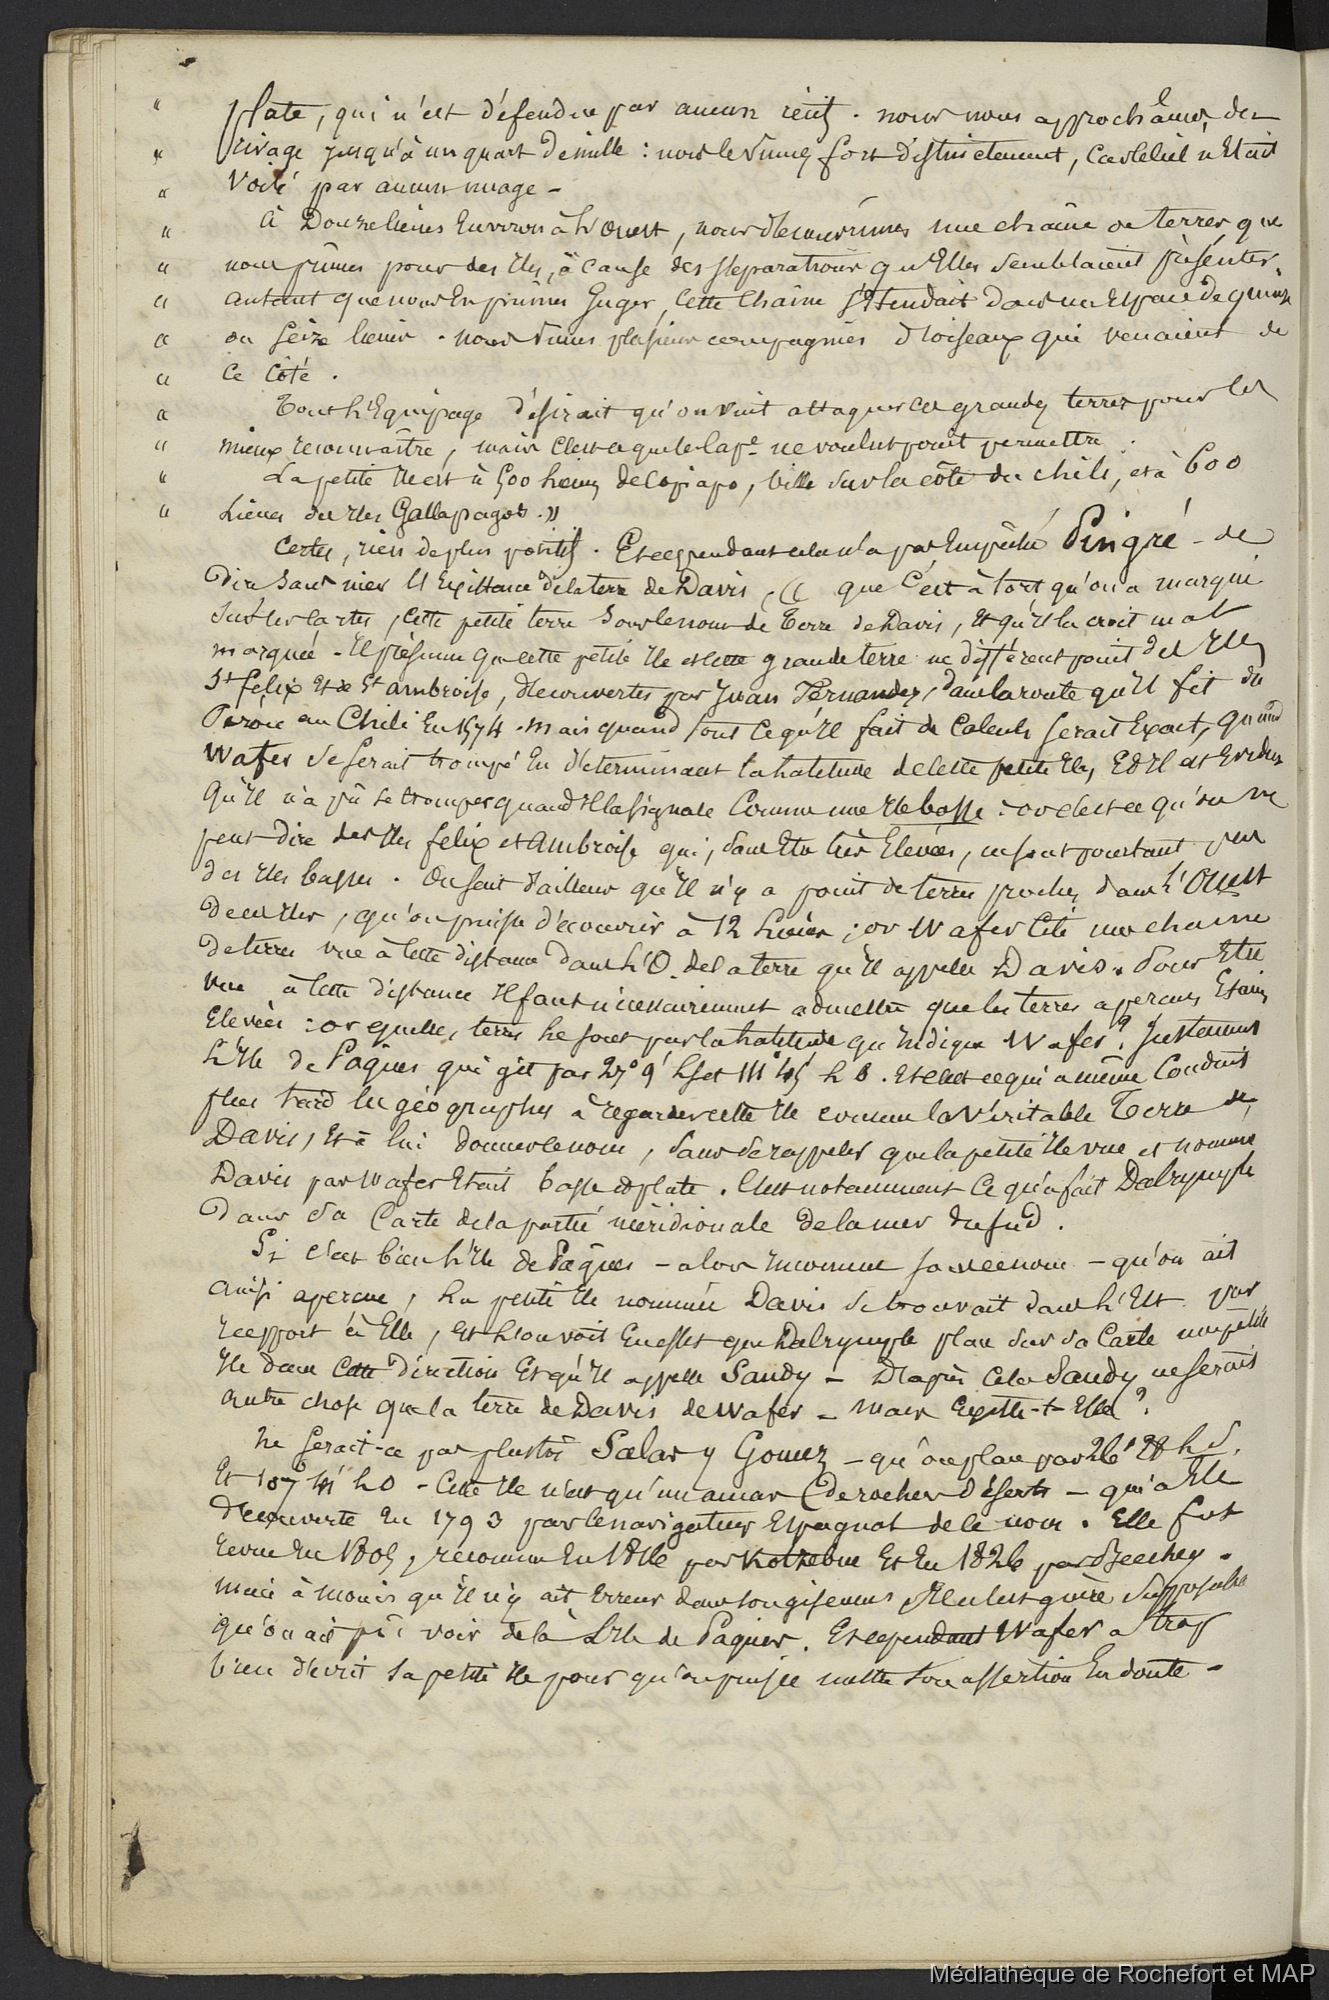 " plate, qui n'est défendue par aucun récif. nous nous approchâmes du
" rivage jusqu'à un quart de mille : nous le vîmes fort distinctement, car le ciel n'était
" voilé par aucun nuage -
" À Douze lieues environ à l'ouest, nous découvrîmes une chaîne de terres que
" nous prîmes pour des îles, à cause des séparations qu'elles semblaient présenter.
" autant que nous en pûmes juger, cette chaîne s'étendait dans un espace de quinze
" ou seize lieues. nous vîmes plusieurs compagnies d'oiseaux qui venaient de
" ce côté.
" Tout l'Equipage désirait qu'on vint attaquer ces grandes terres pour les
" mieux reconnaître, mais c'est ce que le Cap.e ne voulut point permettre.
" La petite île est à 500 lieues de Copiapo, ville sur la côte du chili, et à 600
" Lieues des îles Gallapagos. »
Certes, rien de plus positif. Et cependant cela n'a pas empêché Pingré - de
dire sans nier l'Existence de la terre de Davis, « que c'est à tort qu'on a marqué
sur les cartes, cette petite terre sous le nom de Terre de Davis, et qu'il la croit mal
marquée - Il présume que cette petite île et cette grande terre ne diffèrent point des îles
St felix et de St ambroise, découvertes par Juan Fernandez, dans la route qu'il fit du
Pérou au Chili en 1574. mais quand tout ce qu'il fait de calculs serait exact, quand
Wafer se serait trompé en déterminant la latitude de cette petite île, Et il est évident
qu'il n'a pû se tromper quand il la signale comme une île basse : or c'est ce qu'on ne
peut dire des îles felix et Ambroise qui, sans être très élevées, ne sont pourtant pas
des îles basses. On sait d'ailleurs qu'il n'y a point de terres proches, dans l'Ouest
de ces îles, qu'on puisse découvrir à 12 Lieues ; or Wafer cite une chaine
de terres vue à cette distance dans l'O. de la terre qu'il appelle Davis. Pour être
vue à cette distance il faut nécessairement admettre que les terres aperçues étaient
Elevées : or quelles terres se sont par la latitude qu'indique Wafer ? Justement
L'île de Pâques qui git par 27° 9' L. S et 111° 45' L O. Et c'est ce qui a même conduit
plus tard les géographes à regarder cette île comme la véritable Terre de
Davis, et à lui donner le nom, sans se rappeler que la petite île vue et nommée
Davis par Wafer était basse et plate. C'est notamment ce qu'a fait Dalrymple
Dans sa Carte de la partie méridionale de la mer du sud.
Si c'est bien l'île de Pâques - alors inconnue sous ce nom - qu'on ait
ainsi aperçue, La petite île nommée Davis se trouvait dans l'Est par
rapport à elle, et l'on voit en effet que Dalrymple place sur sa Carte une petite
île dans cette direction et qu'il appelle Sandy - D'après cela Sandy ne serait
autre chose que la terre de Davis de Wafer - mais existe-t-elle ?
Ne serait-ce pas plustôt Salas y Gomez - qu'on place par 26° 28' L. S.
et 107° 41' L O - Cette île n'est qu'un amas de rochers déserts - qui a été
découverte en 1793 par le navigateur Espagnol de ce nom. Elle fut
revue en 1805, reconnue en 1816 par Kotzebue et en 1826 par Beechey.
mais à moins qu'il n'y ait erreur dans son gisement il n'est guère supposable
qu'on ait pû voir de là l'île de Pâques. Et cependant Wafer a trop
bien décrit sa petite île pour qu'on puisse mettre son assertion en doute -
Médiathèque de Rochefort et MAP